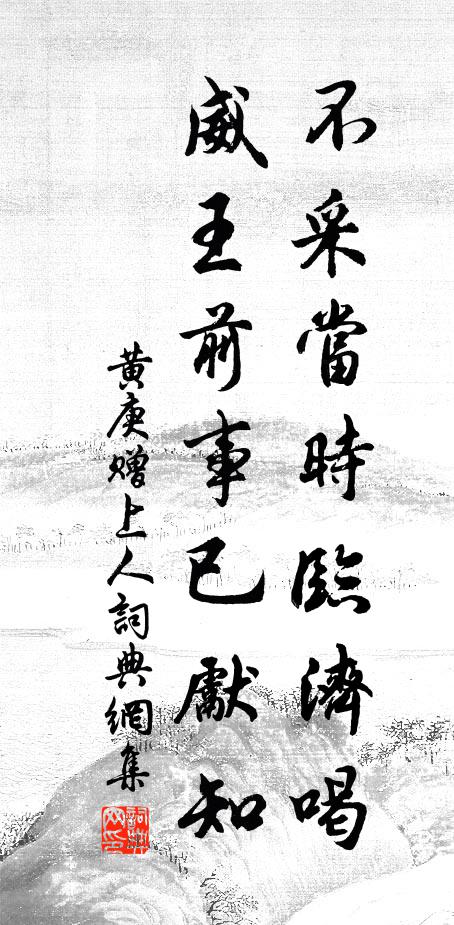 不采當時臨濟喝
威王前事已獻知
黃庚贈上人詞典網集